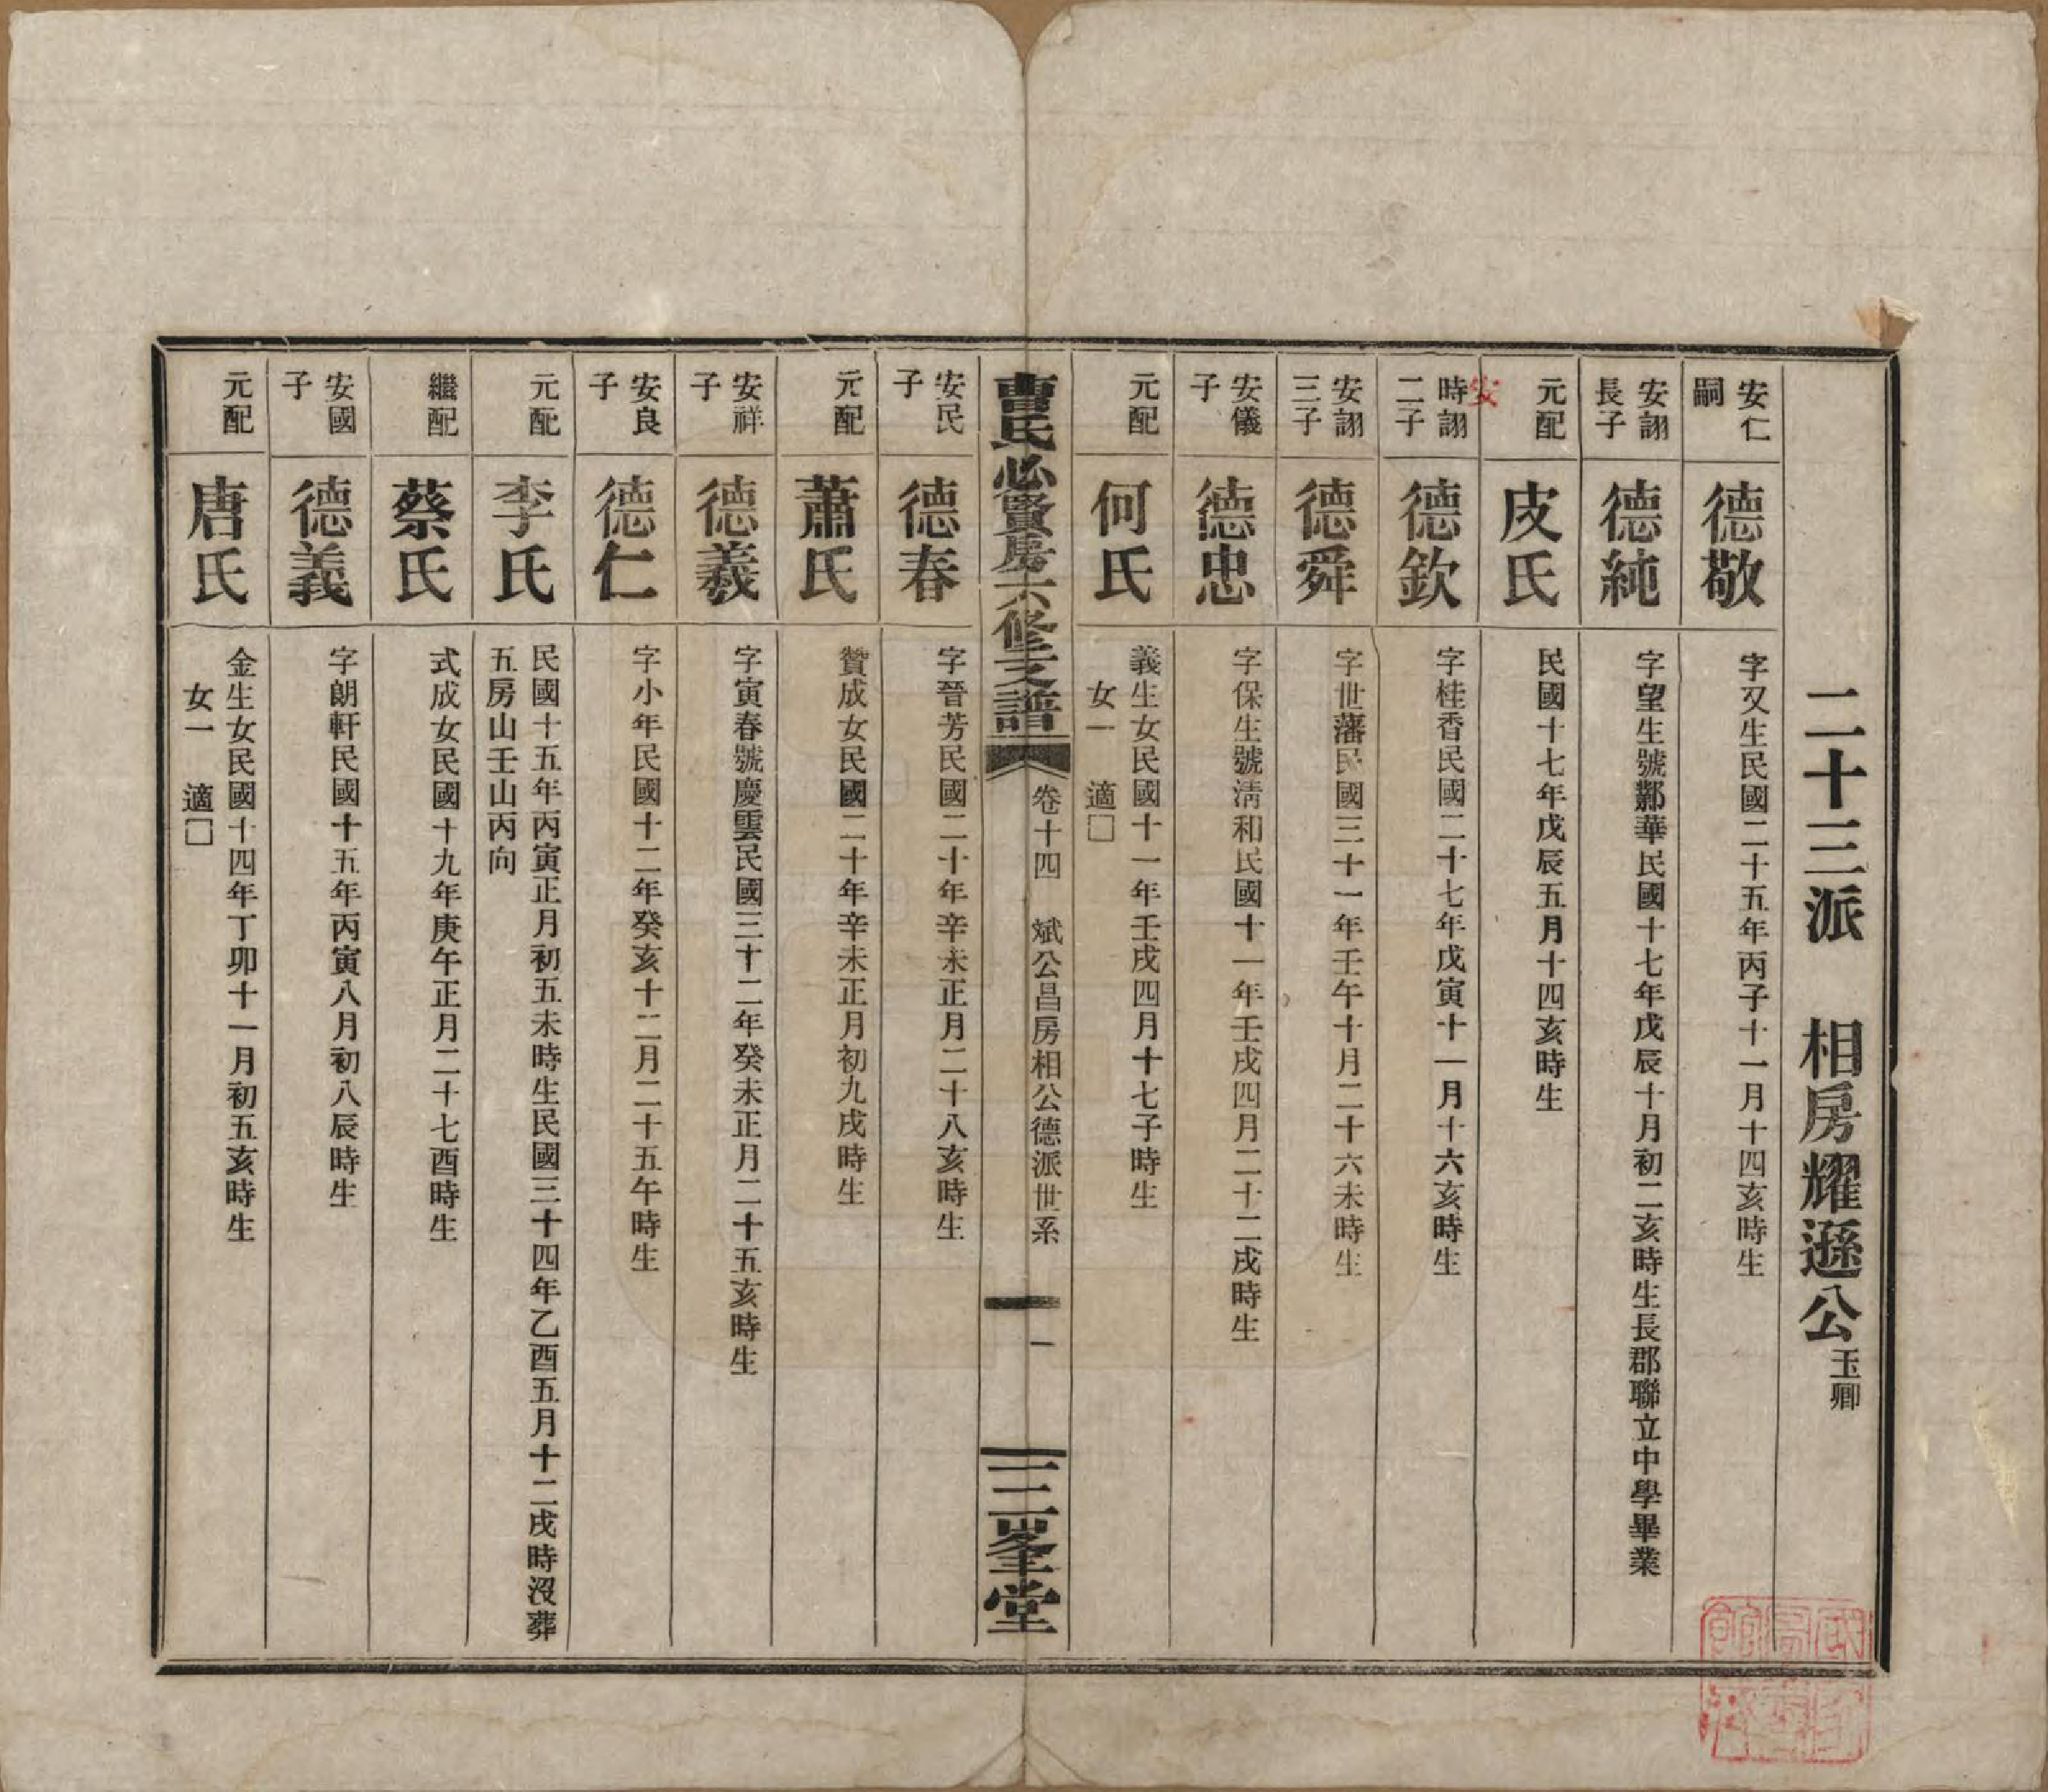 二十三派　相房耀遜公玉卿
安仁嗣
德敬
字又生民國二十五年丙子十一月十四亥時生
安詡長子
德純
字望生號鄴華民國十七年戊辰十月初二亥時生長郡聯立中學畢業
元配
皮氏
民國十七年戊辰五月十四亥時生
安
時詡二子
德欽
字桂香民國二十七年戊寅十一月十六亥時生
安詡三子
德舜
字世藩民國三十一年壬午十月二十六未時生
安儀子
德忠
字保生號清和民國十一年壬戌四月二十二戌時生
元配
何氏
義生女民國十一年壬戌四月十七子時生
女一　適□
曹氏必賢房六修支譜
卷十四　斌公昌房相公德派世系
一
三峯堂
安民子
德春
字晉芳民國二十年辛未正月二十八亥時生
元配
蕭氏
贊成女民國二十年辛未正月初九戌時生
安祥子
德羲
字寅春號慶雲民國三十二年癸未正月二十五亥時生
安良子
德仁
字小年民國十二年癸亥十二月二十五午時生
元配
李氏
民國十五年丙寅正月初五未時生民國三十四年乙酉五月十二戌時沒葬
五房山壬山丙向
繼配
蔡氏
式成女民國十九年庚午正月二十七酉時生
安國子
德義
字朗軒民國十五年丙寅八月初八辰時生
元配
唐氏
金生女民國十四年丁卯十一月初五亥時生
女一　適□